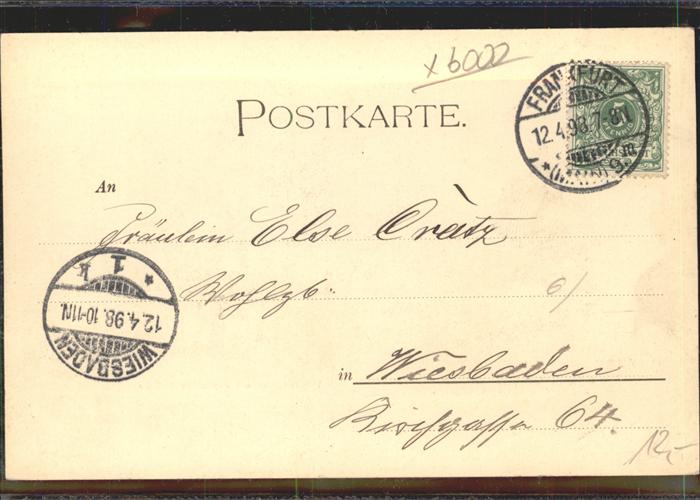 x6000
POSTKARTE.
FRANKFURT
12.4.98.7-8N
*(MAIN) 9.
5
An
Fräulein Else Crätz
Wohlgb.
6/
1 k
12.4.98.10-11N.
WIESBADEN
in Wiesbaden
Kirchgasse 64.
12,-